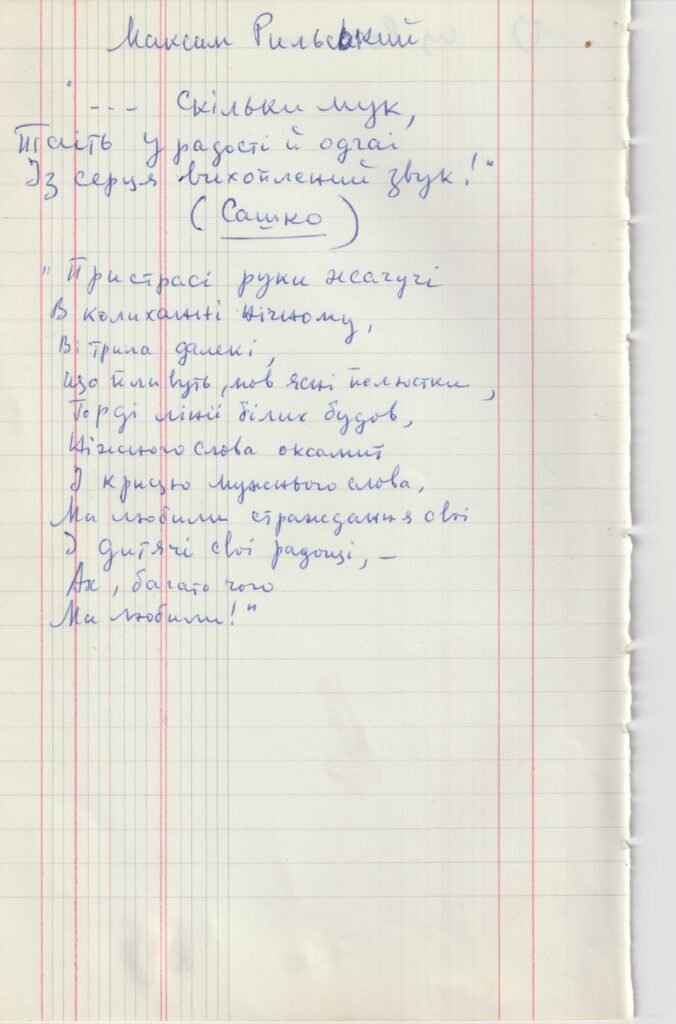 Максим Рильський
"--- Скільки мук,
Таїть у радості й одчаї
Із серця вихоплений звук!"
(Сашко)
"Пристрасі руки жагучі
В колиханні нічному,
Вітрила далекі,
Що пливуть, мов ясні пелюстки,
Горді лінії білих будов,
Ніжного слова оксамит
І крицю мужнього слова,
Ми любили страждання свої
І дитячі свої радощі, —
Ах, багато чого
Ми любили!"